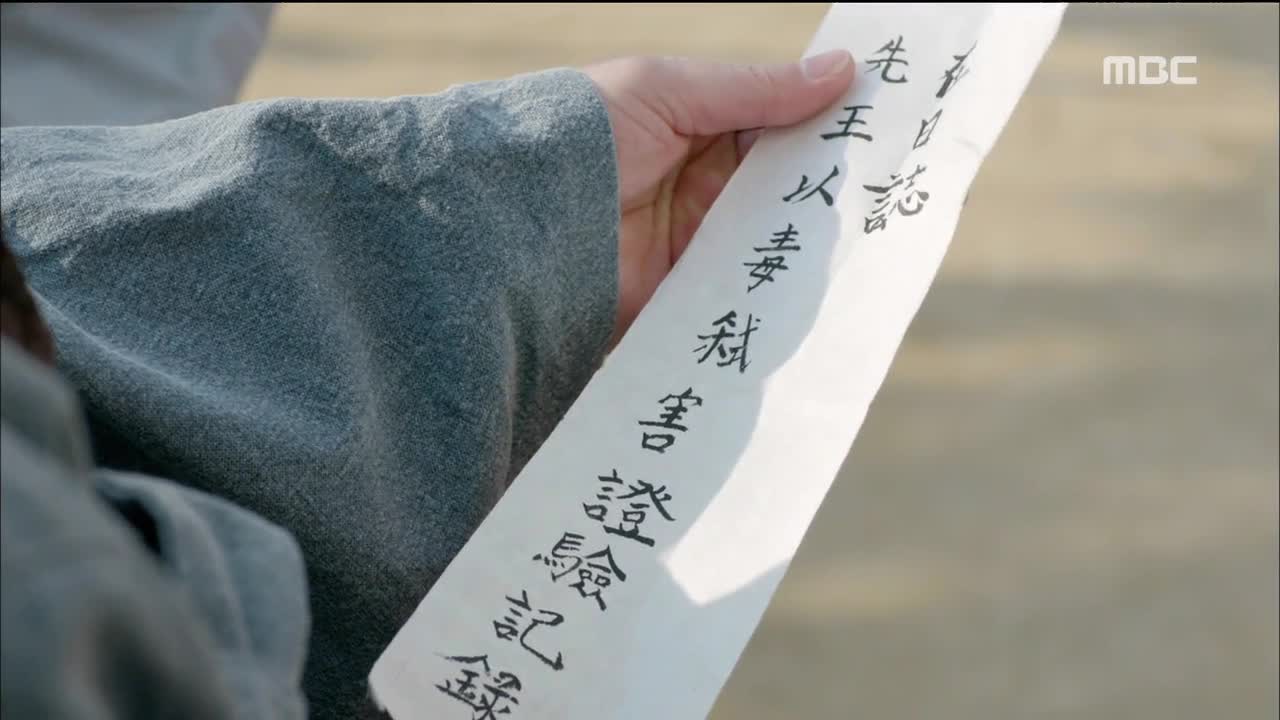 日誌
先王以毒弑害證驗記錄
MBC